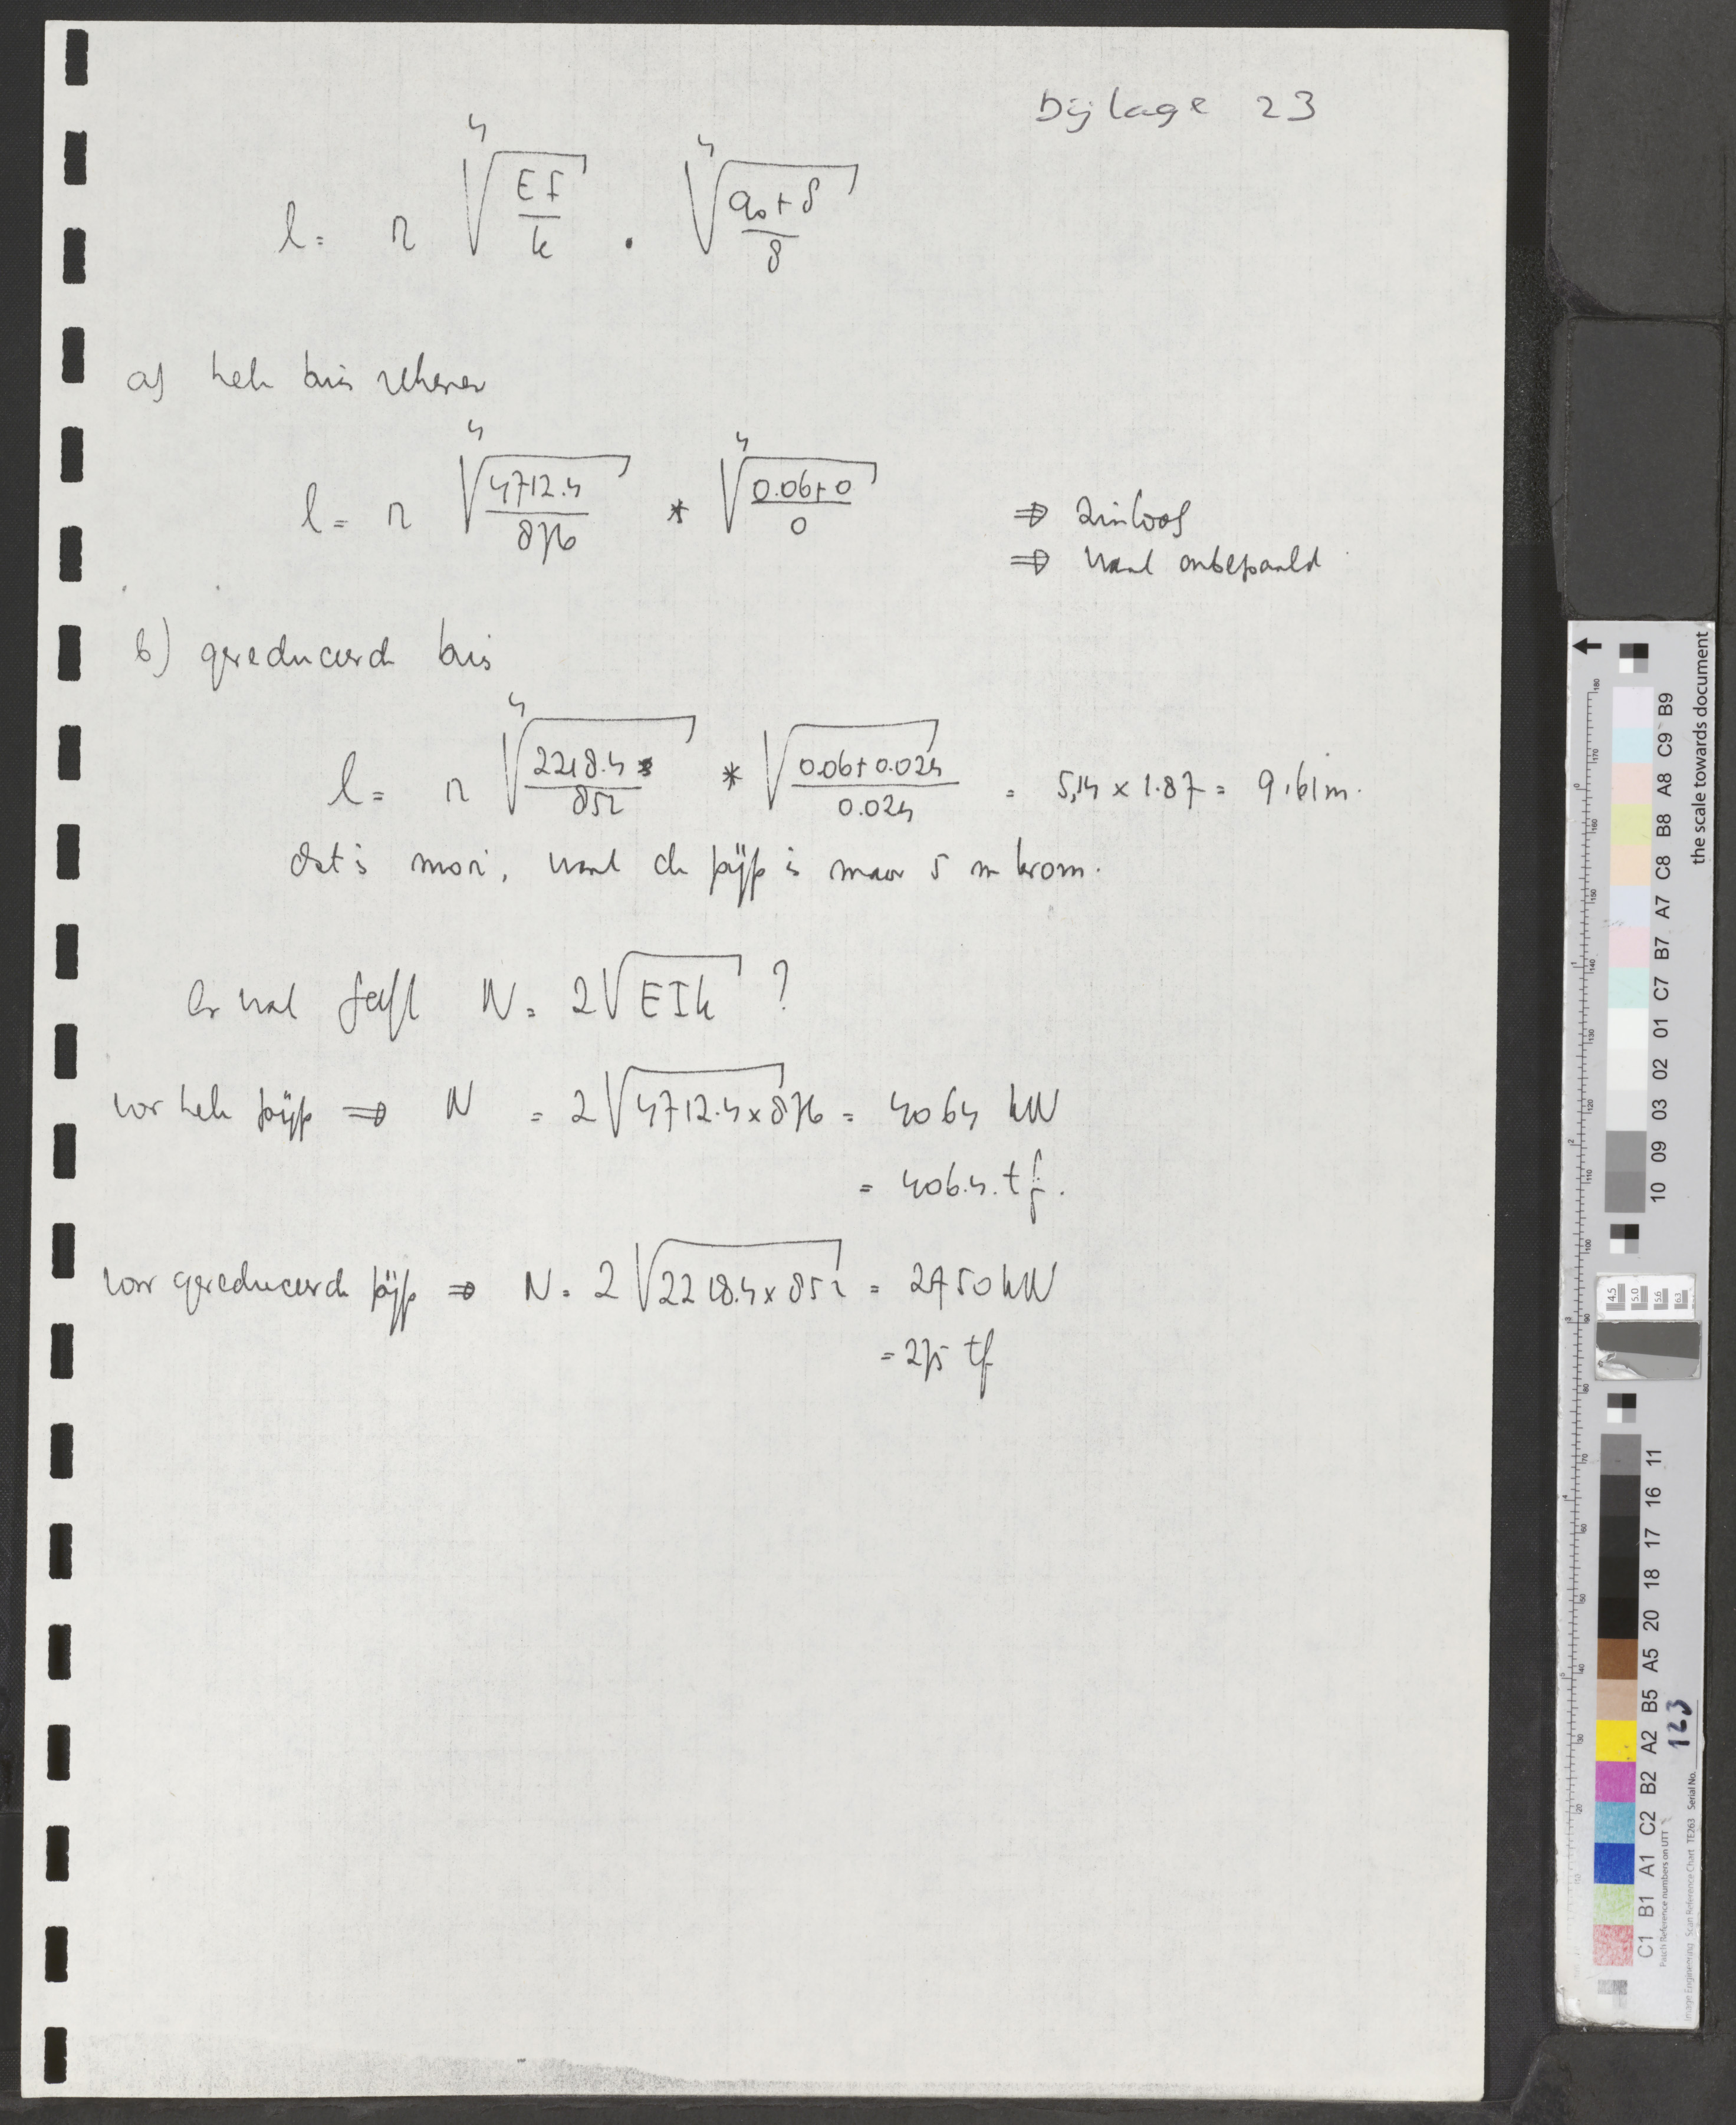 Bijlage 23
l = π ⁴√(EI/k) · ⁴√((a₀+δ)/δ)
a) hele buis rekenen
l = π ⁴√(4712.4/876) * ⁴√((0.06+0)/0) ⇒ zinloos
⇒ want onbepaald
b) gereduceerde buis
l = π ⁴√(2218.4/852) * √((0.06+0.024)/0.024) = 5,14 x 1.87 = 9.61 m.
dat is mooi, want de pijp is maar 5 m krom.
En wat geeft N = 2√EIk ?
voor hele pijp ⇒ N = 2√4712.4x876 = 4064 kN
= 406.4. tf.
voor gereduceerde pijp ⇒ N = 2√2218.4x852 = 2750 kN
= 275 tf
the scale towards document
C1 B1 A1 C2 B2 A2 B5 A5 20 18 17 16 11
10 09 03 02 01 C7 B7 A7 C8 B8 A8 C9 B9
4.5 5.0 5.6 6.3
Patch Reference numbers on UTT
Image Engineering Scan Reference Chart TE263 Serial No. 123